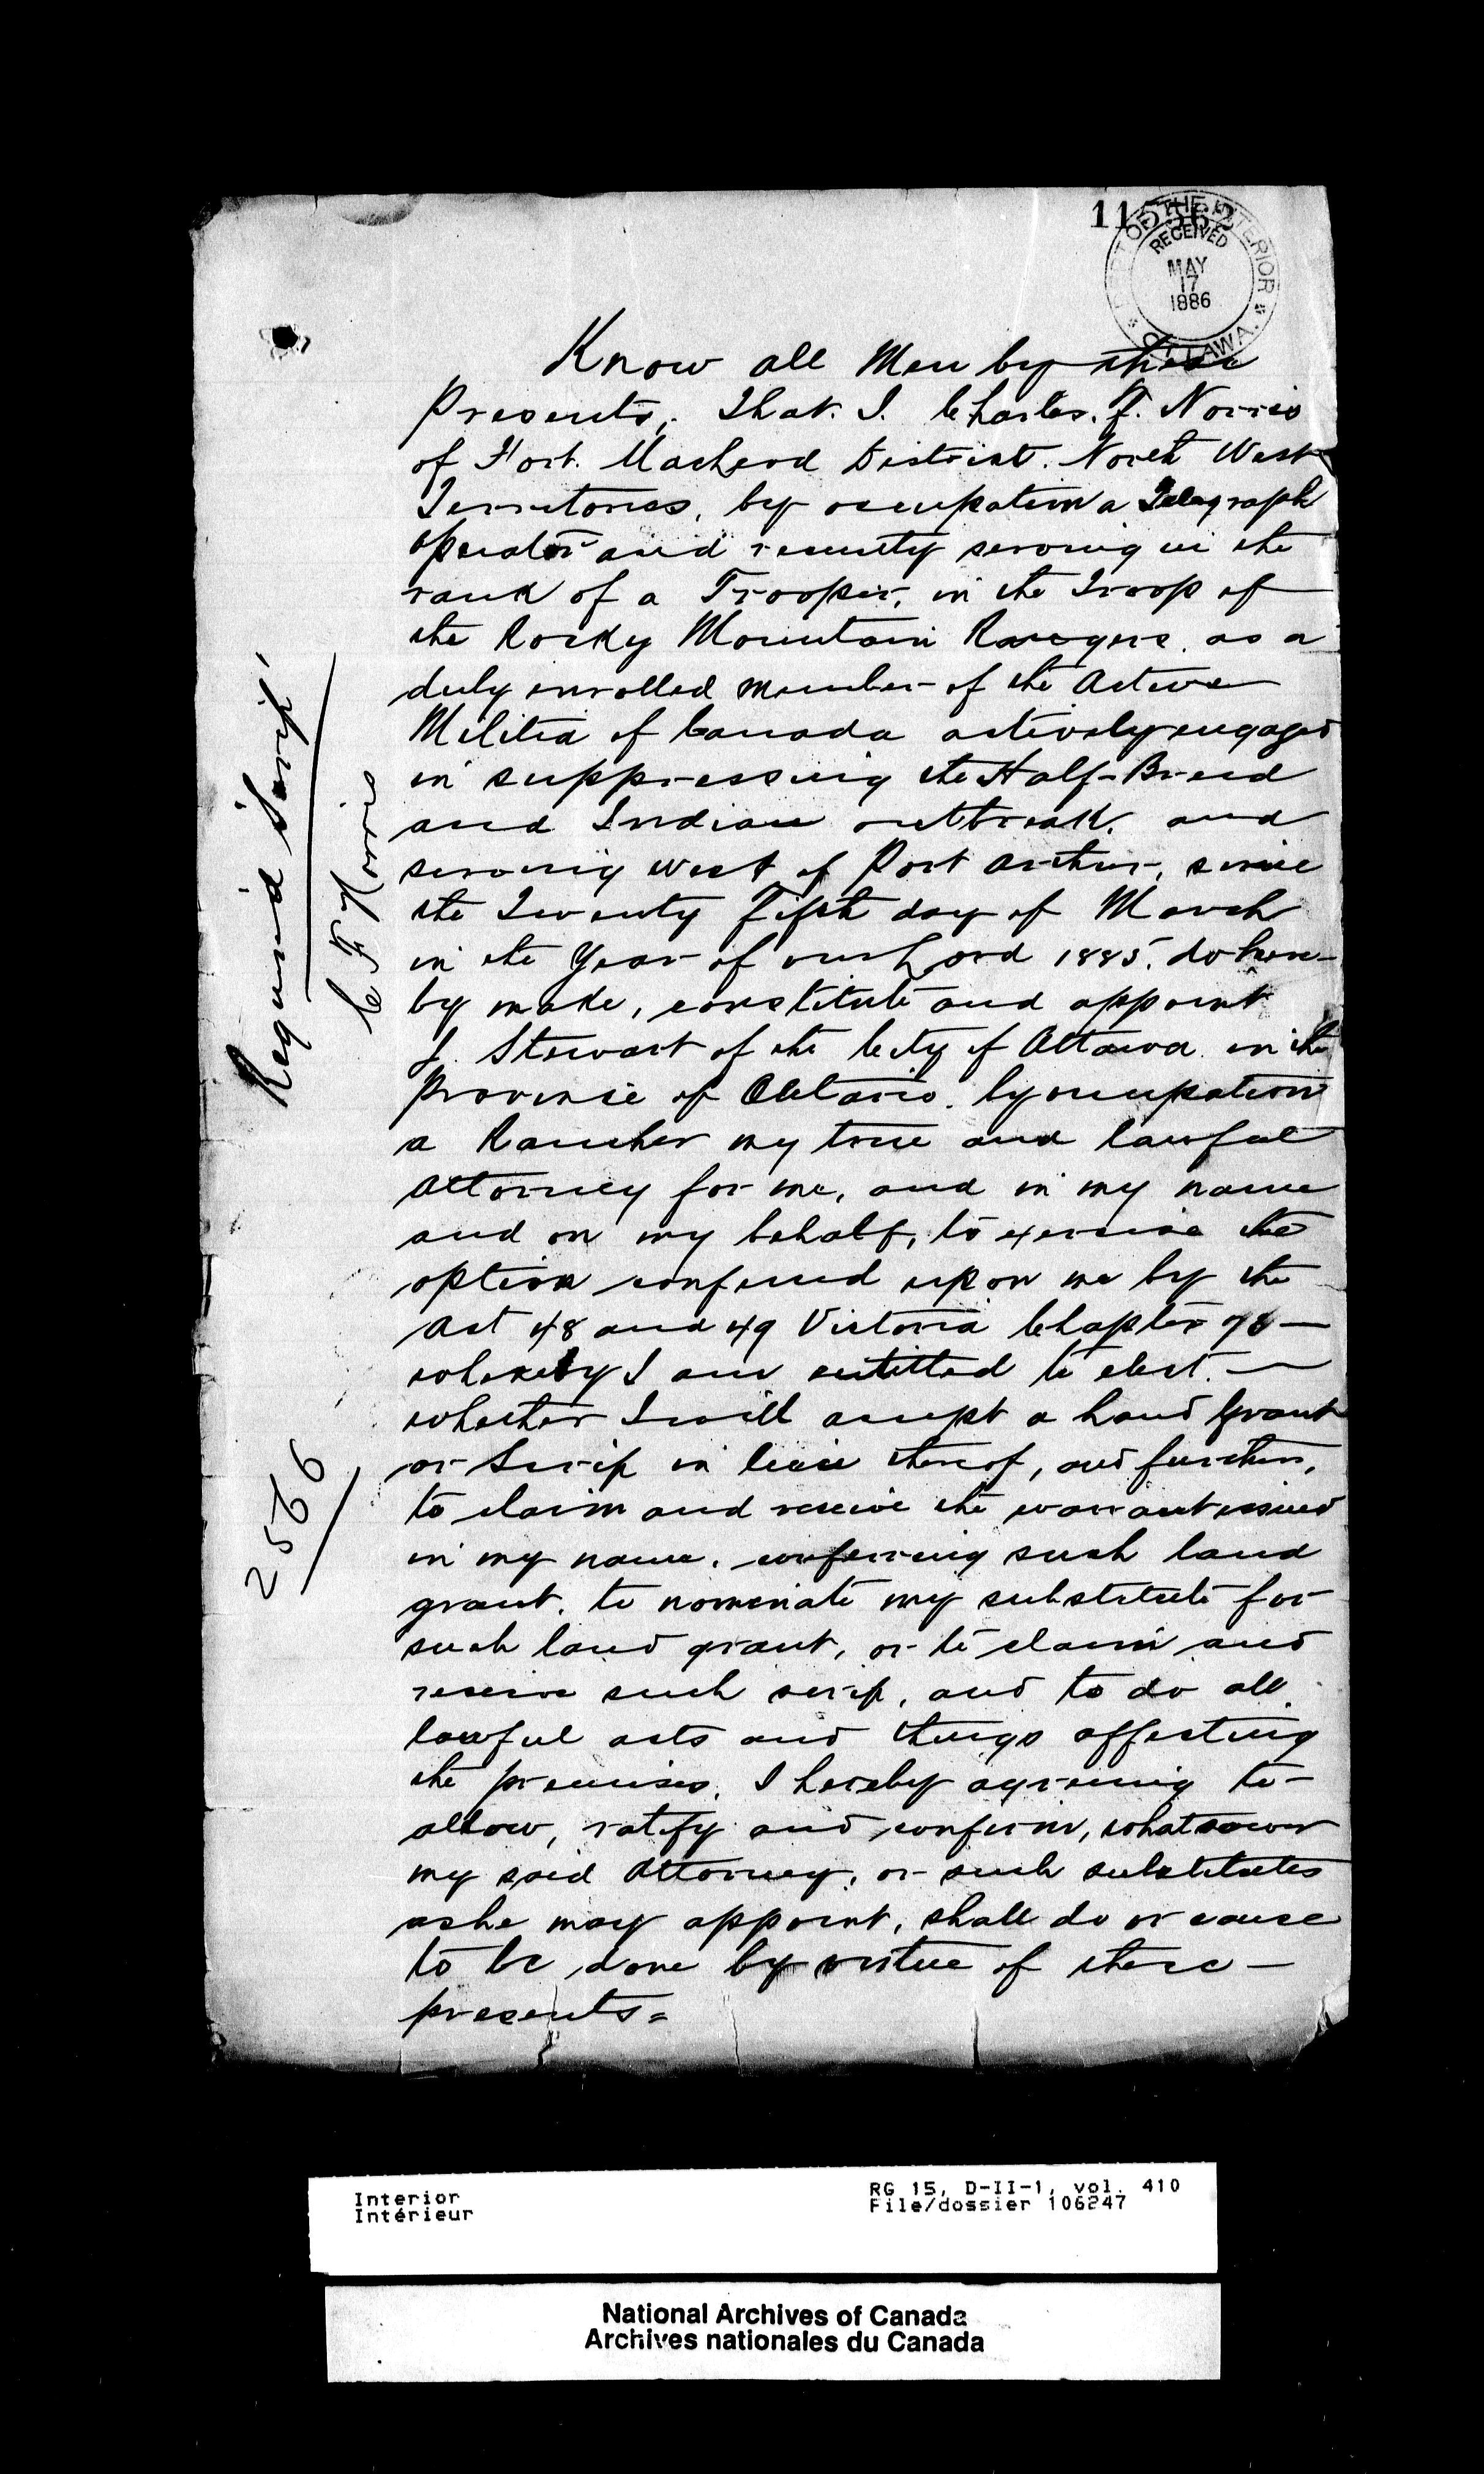 115562
DEPT OF THE INTERIOR
RECEIVED
MAY
17
1886
OTTAWA.
Know all Men by these
Presents, That. I. Charles. F. Norris
of Fort. Macleod District. North West
Territories, by occupation a Telegraph
operator and recently serving in the
rank of a Trooper, in the Troop of
the Rocky Mountain Rangers. as a
duly enrolled member of the Active
Militia of Canada actively engaged
in suppressing the Half-Breed
and Indian outbreak, and
serving west of Port Arthur, since
the Twenty Fifth day of March
in the Year of our Lord 1885. do here-
by make, constitute and appoint
J. Stewart of the City of Ottawa in the
Province of Ontario. by occupation
a Rancher my true and lawful
Attorney for me, and in my name
and on my behalf, to exercise the
option conferred upon me by the
Act 48 and 49 Victoria Chapter 73 —
whereby I am entitled to elect. —
whether I will accept a Land Grant
or Scrip in lieu thereof, and further,
to claim and receive the warrant issued
in my name, conferring such land
grant, to nominate my substitute for
such land grant, or to claim and
receive such scrip, and to do all
lawful acts and things affecting
the premises, I hereby agreeing to-
allow, ratify and confirm, whatsoever
my said Attorney, or such substitutes
as he may appoint, shall do or cause
to be done by virtue of these —
presents =
Required Scrip
C F Norris
2566
Interior
Intérieur
RG 15, D-II-1, vol. 410
File/dossier 106247
National Archives of Canada
Archives nationales du Canada